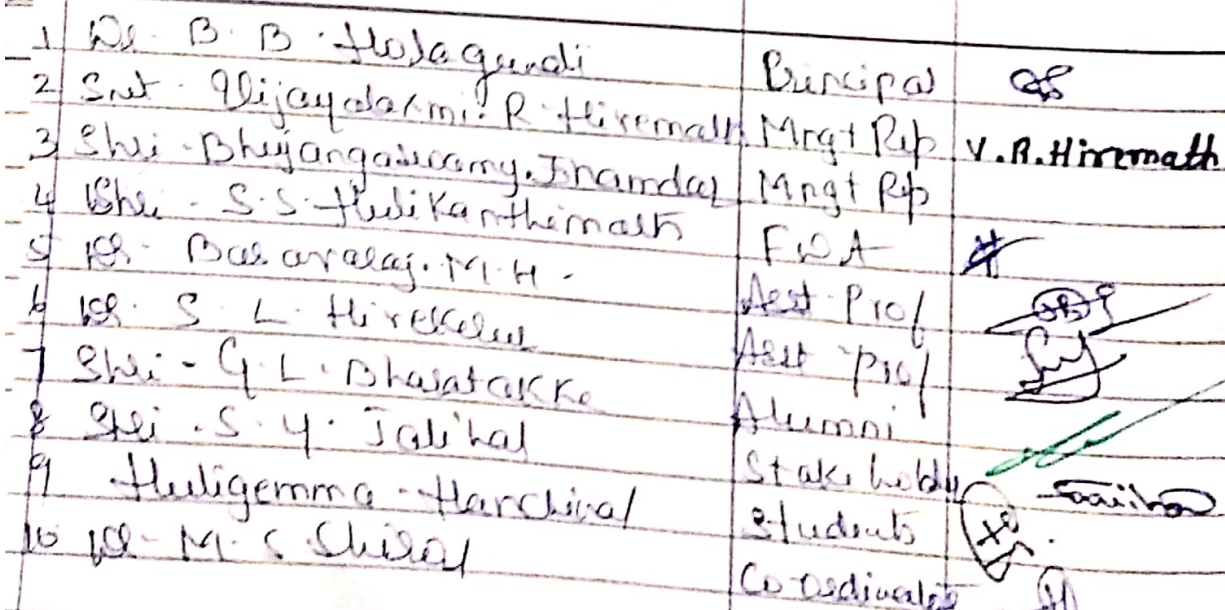 1 Dr. B. B. Holagundi Principal
2 Smt. Vijayalaxmi. R. Hiremath Mngt Rep V. R. Hiremath
3 Shri. Bhujangaswamy. Inamdar Mngt Rep
4 Shri. S. S. Hulikanthimath FDA
5 Dr. Basavaraj. M. H. Asst. Prof
6 Dr. S. L. Hirekerur Asst Prof
7 Shri - G. L. Bharatakke Alumni
8 Shri. S. Y. Jalihal Stake holder
9 Huligemma Harchinal Students
10 Dr. M. S. Co-ordinator